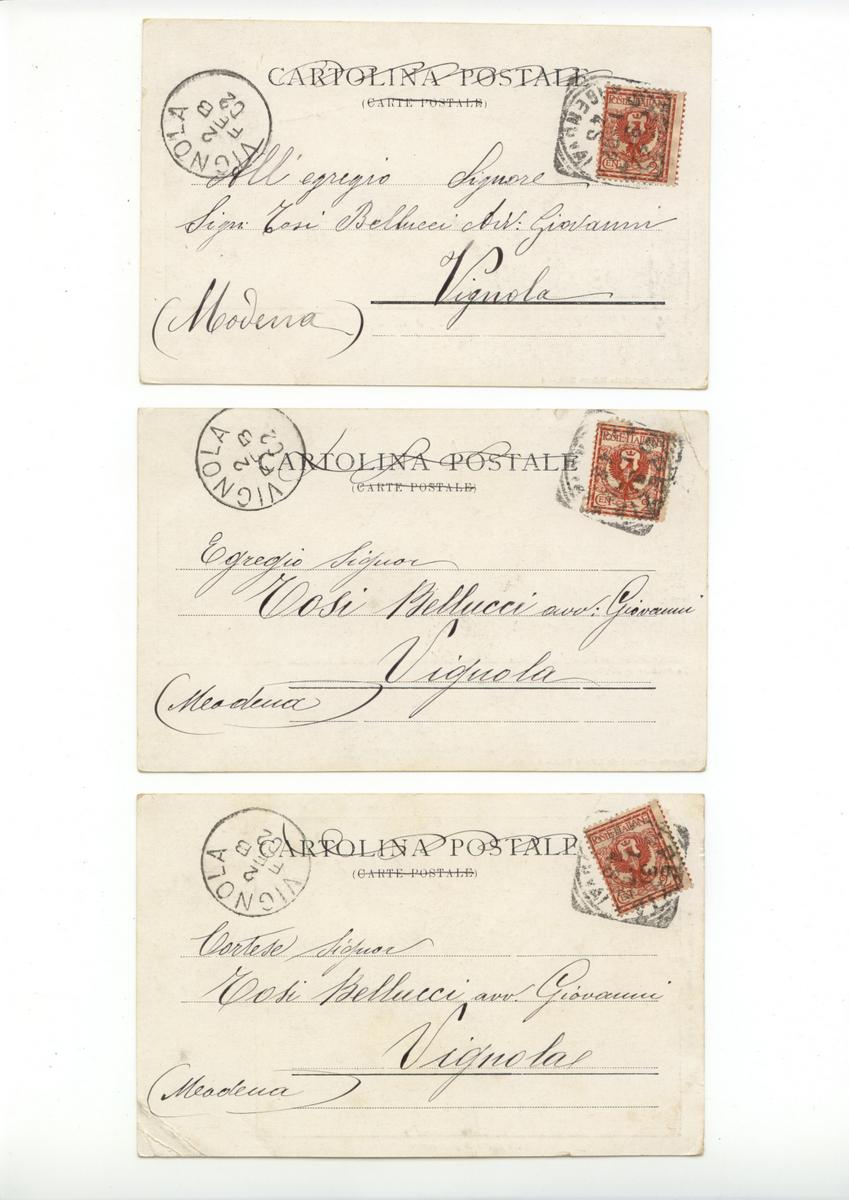 CARTOLINA POSTALE
(CARTE POSTALE)
VIGNOLA
2 FEB 02
POSTE ITALIANE
CENT 2
All' egregio Signore
Sign: Tosi Bellucci Avv: Giovanni
Vignola
(Modena)
CARTOLINA POSTALE
(CARTE POSTALE)
VIGNOLA
POSTE ITALIANE
CENT 2
Egregio Signor
Tosi Bellucci avv: Giovanni
Vignola
(Modena)
CARTOLINA POSTALE
(CARTE POSTALE)
VIGNOLA
2 FEB 02
POSTE ITALIANE
Cortese Signor
Tosi Bellucci avv. Giovanni
Vignola
(Modena)